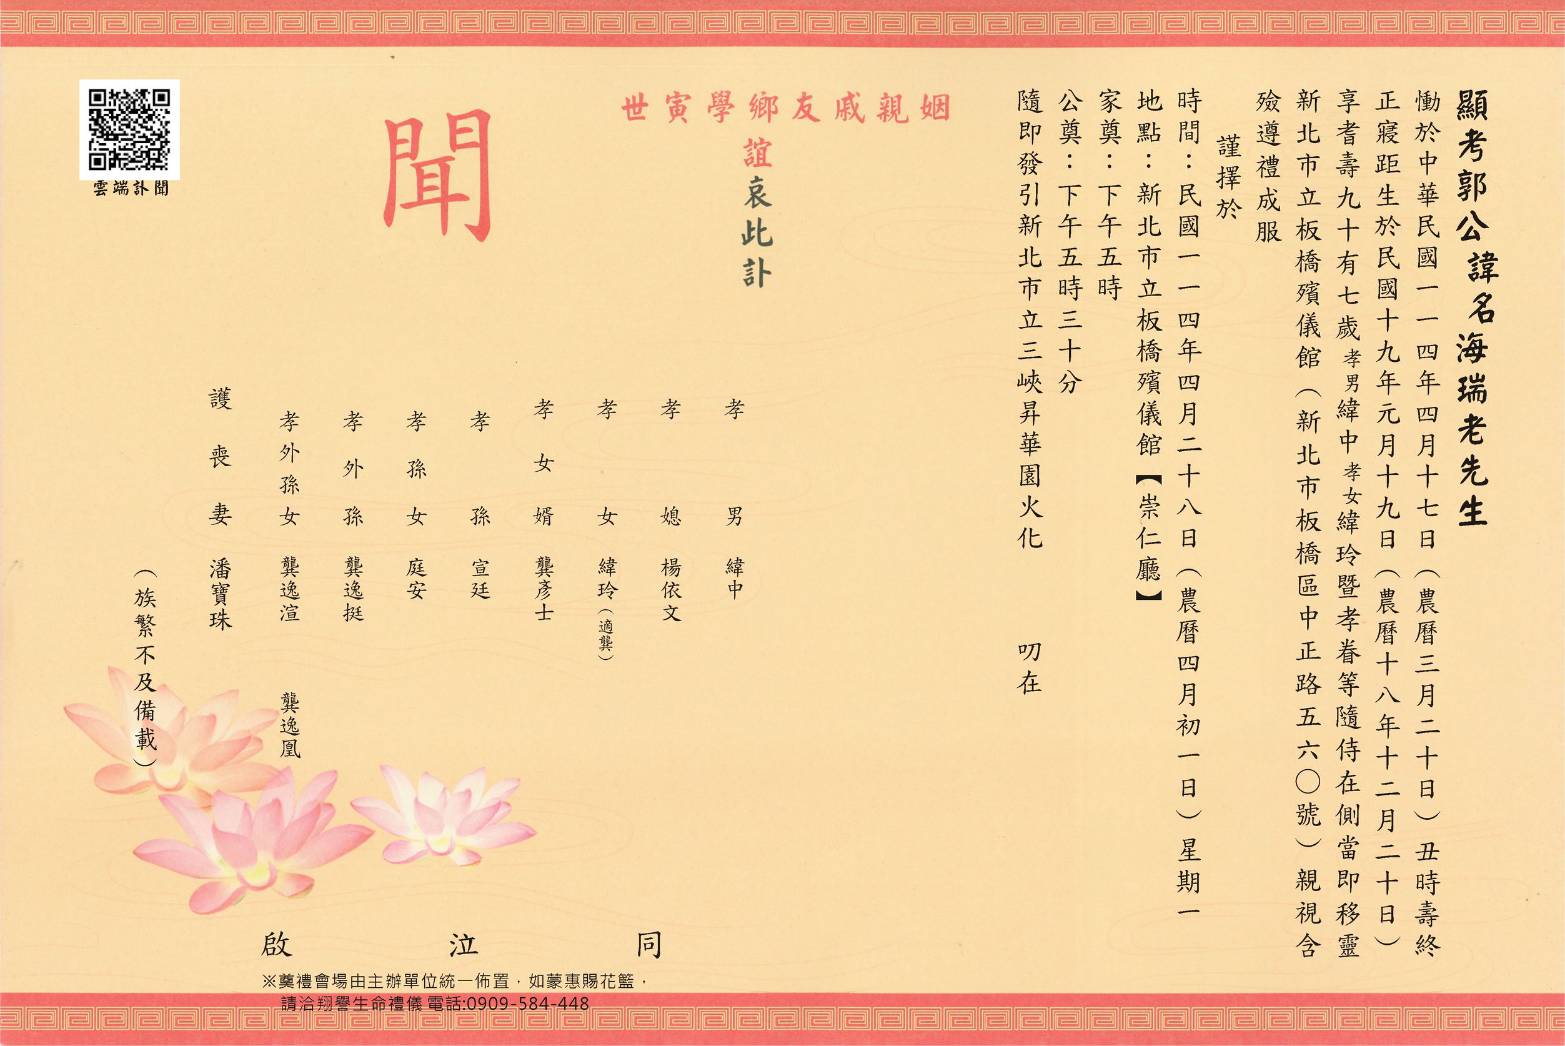 顯考郭公諱名海瑞老先生
慟於中華民國一一四年四月十七日（農曆三月二十日）丑時壽終
正寢距生於民國十九年元月十九日（農曆十八年十二月二十日）
享耆壽九十有七歲孝男緯中孝女緯玲暨孝眷等隨侍在側當即移靈
新北市立板橋殯儀館（新北市板橋區中正路五六〇號）親視含
殮遵禮成服
謹擇於
時間：民國一一四年四月二十八日（農曆四月初一日）星期一
地點：新北市立板橋殯儀館【崇仁廳】
家奠：下午五時
公奠：下午五時三十分
隨即發引新北市立三峽昇華園火化 叨在
姻親戚友鄉學寅世
誼哀此訃
聞
孝男 緯中
孝媳 楊依文
孝女 緯玲（適龔）
孝女婿 龔彥士
孝孫 宣廷
孝孫女 庭安
孝外孫 龔逸挺
孝外孫女 龔逸渲 龔逸凰
護喪妻 潘寶珠
（族繁不及備載）
同泣啟
雲端訃聞
※奠禮會場由主辦單位統一佈置，如蒙惠賜花籃，
請洽翔譽生命禮儀 電話:0909-584-448